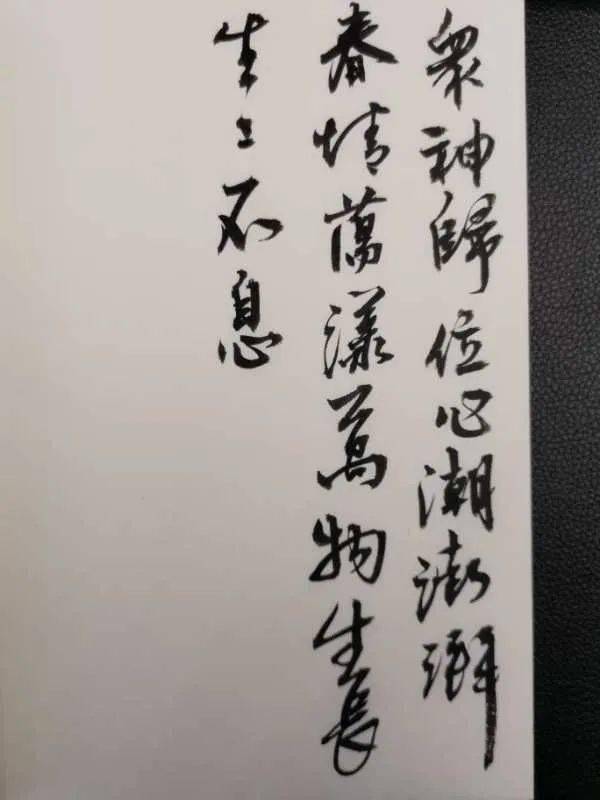 衆神歸位心潮澎湃
春情蕩漾萬物生長
生生不息